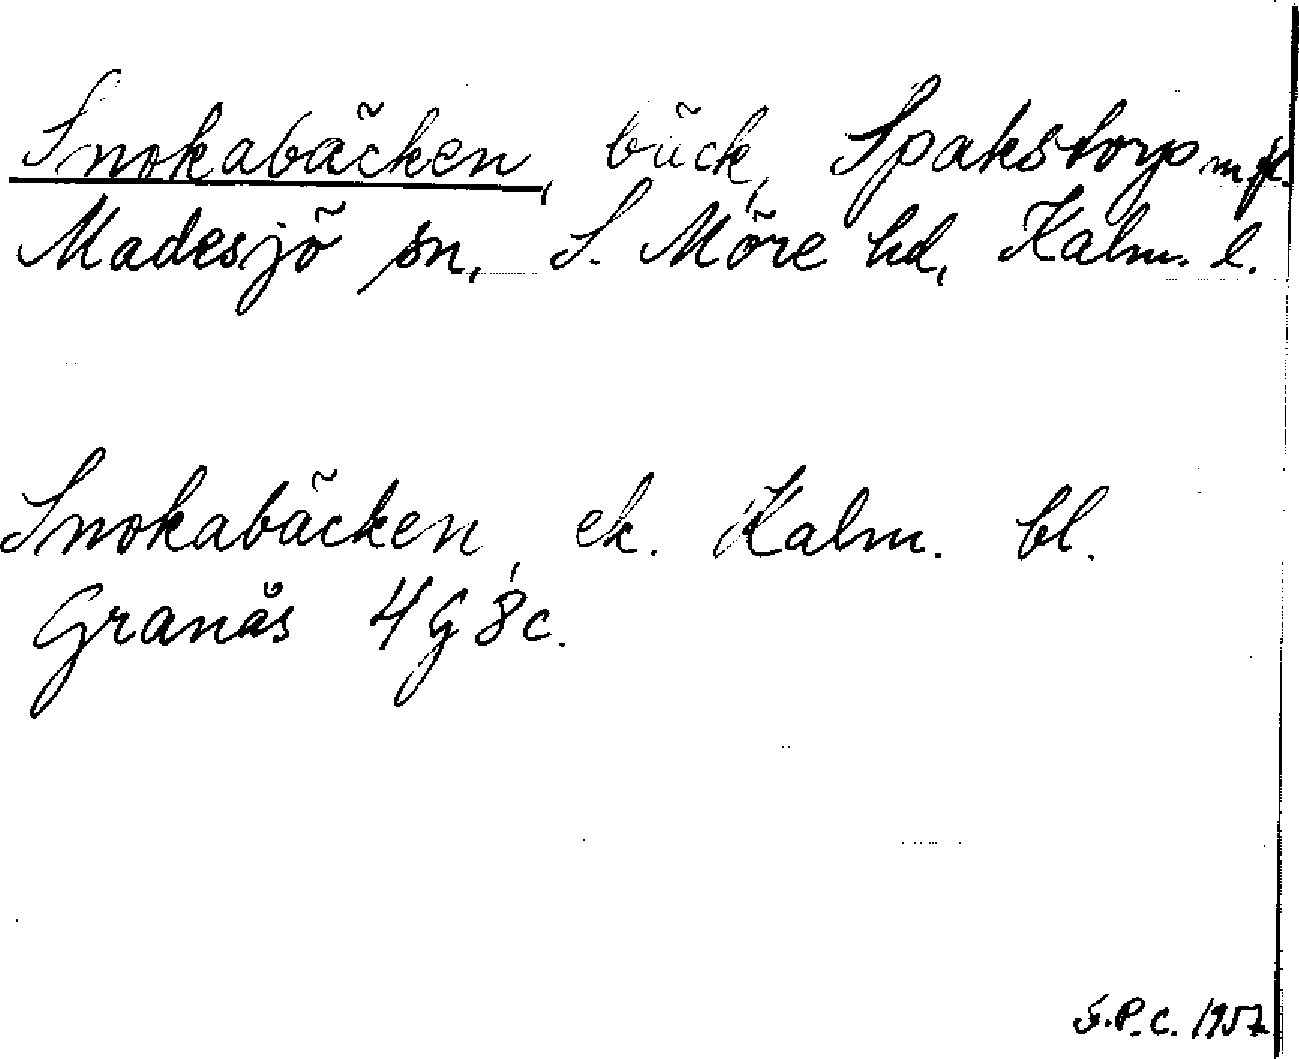 Snokabäcken, bäck, Spakstorp m.fl.
Madesjö sn, S. Möre hd, Kalm. l.
Snokabäcken, ek. Kalm. bl.
Granås 4G 8c.
S.P.C. 1957